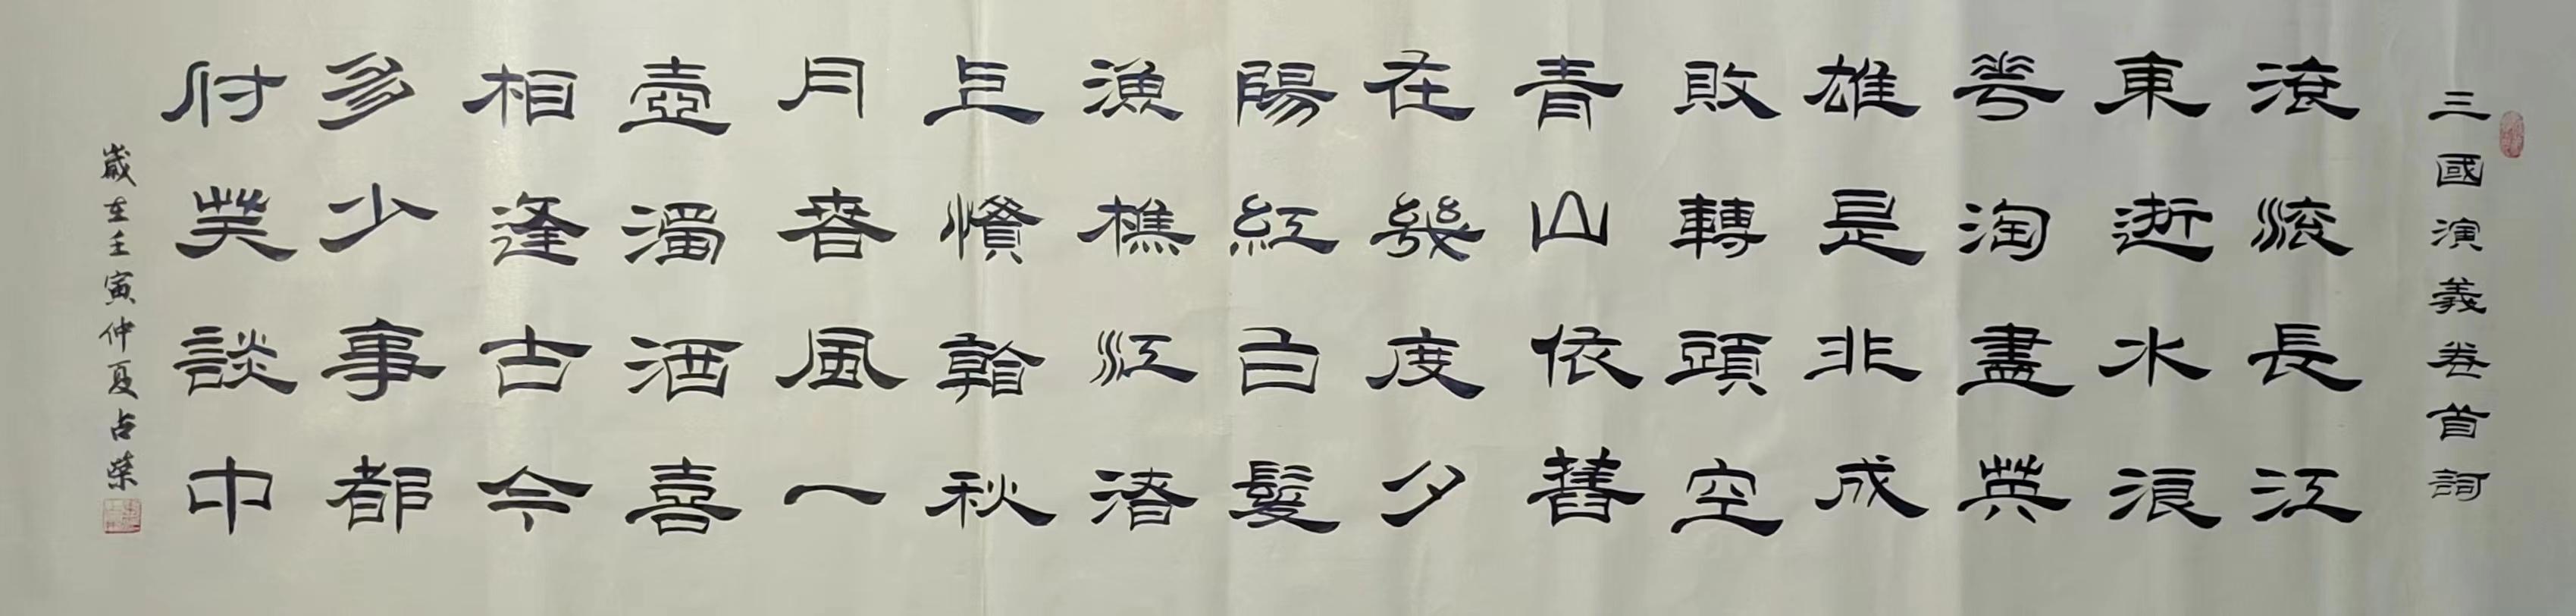 三國演義卷首詞
滾滾長江
東逝水浪
花淘盡英
雄是非成
敗轉頭空
青山依舊
在幾度夕
陽紅白髮
漁樵江渚
上慣看秋
月春風一
壺濁酒喜
相逢古今
多少事都
付笑談中
歲在壬寅仲夏占榮